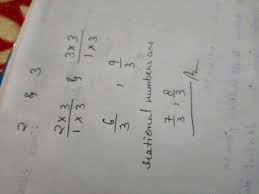 2 & 3
2×3/1×3 & 3×3/1×3
6/3 , 9/3
rational numbers are
7/3 , 8/3